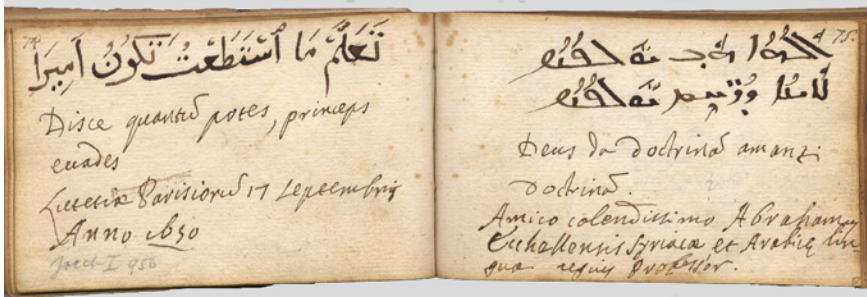 74
تَعَلَّمْ مَا ٱسْتَطَعْتَ تَكُونُ أَمِيرًا
Disce quantũ potes, princeps
euades
Lutetiæ Parisiorũ 17 Septembris
Anno 1650
I 956
75.
ܐܠܗܐ ܗܒ ܝܘܠܦܢܐ
ܕܪܚܡ ܝܘܠܦܢܐ
Deus da doctrinã amanti
doctrinã.
Amico colendissimo Abraham
Ecchellensis Syriacæ et Arabicę lin
guæ regius Professor.